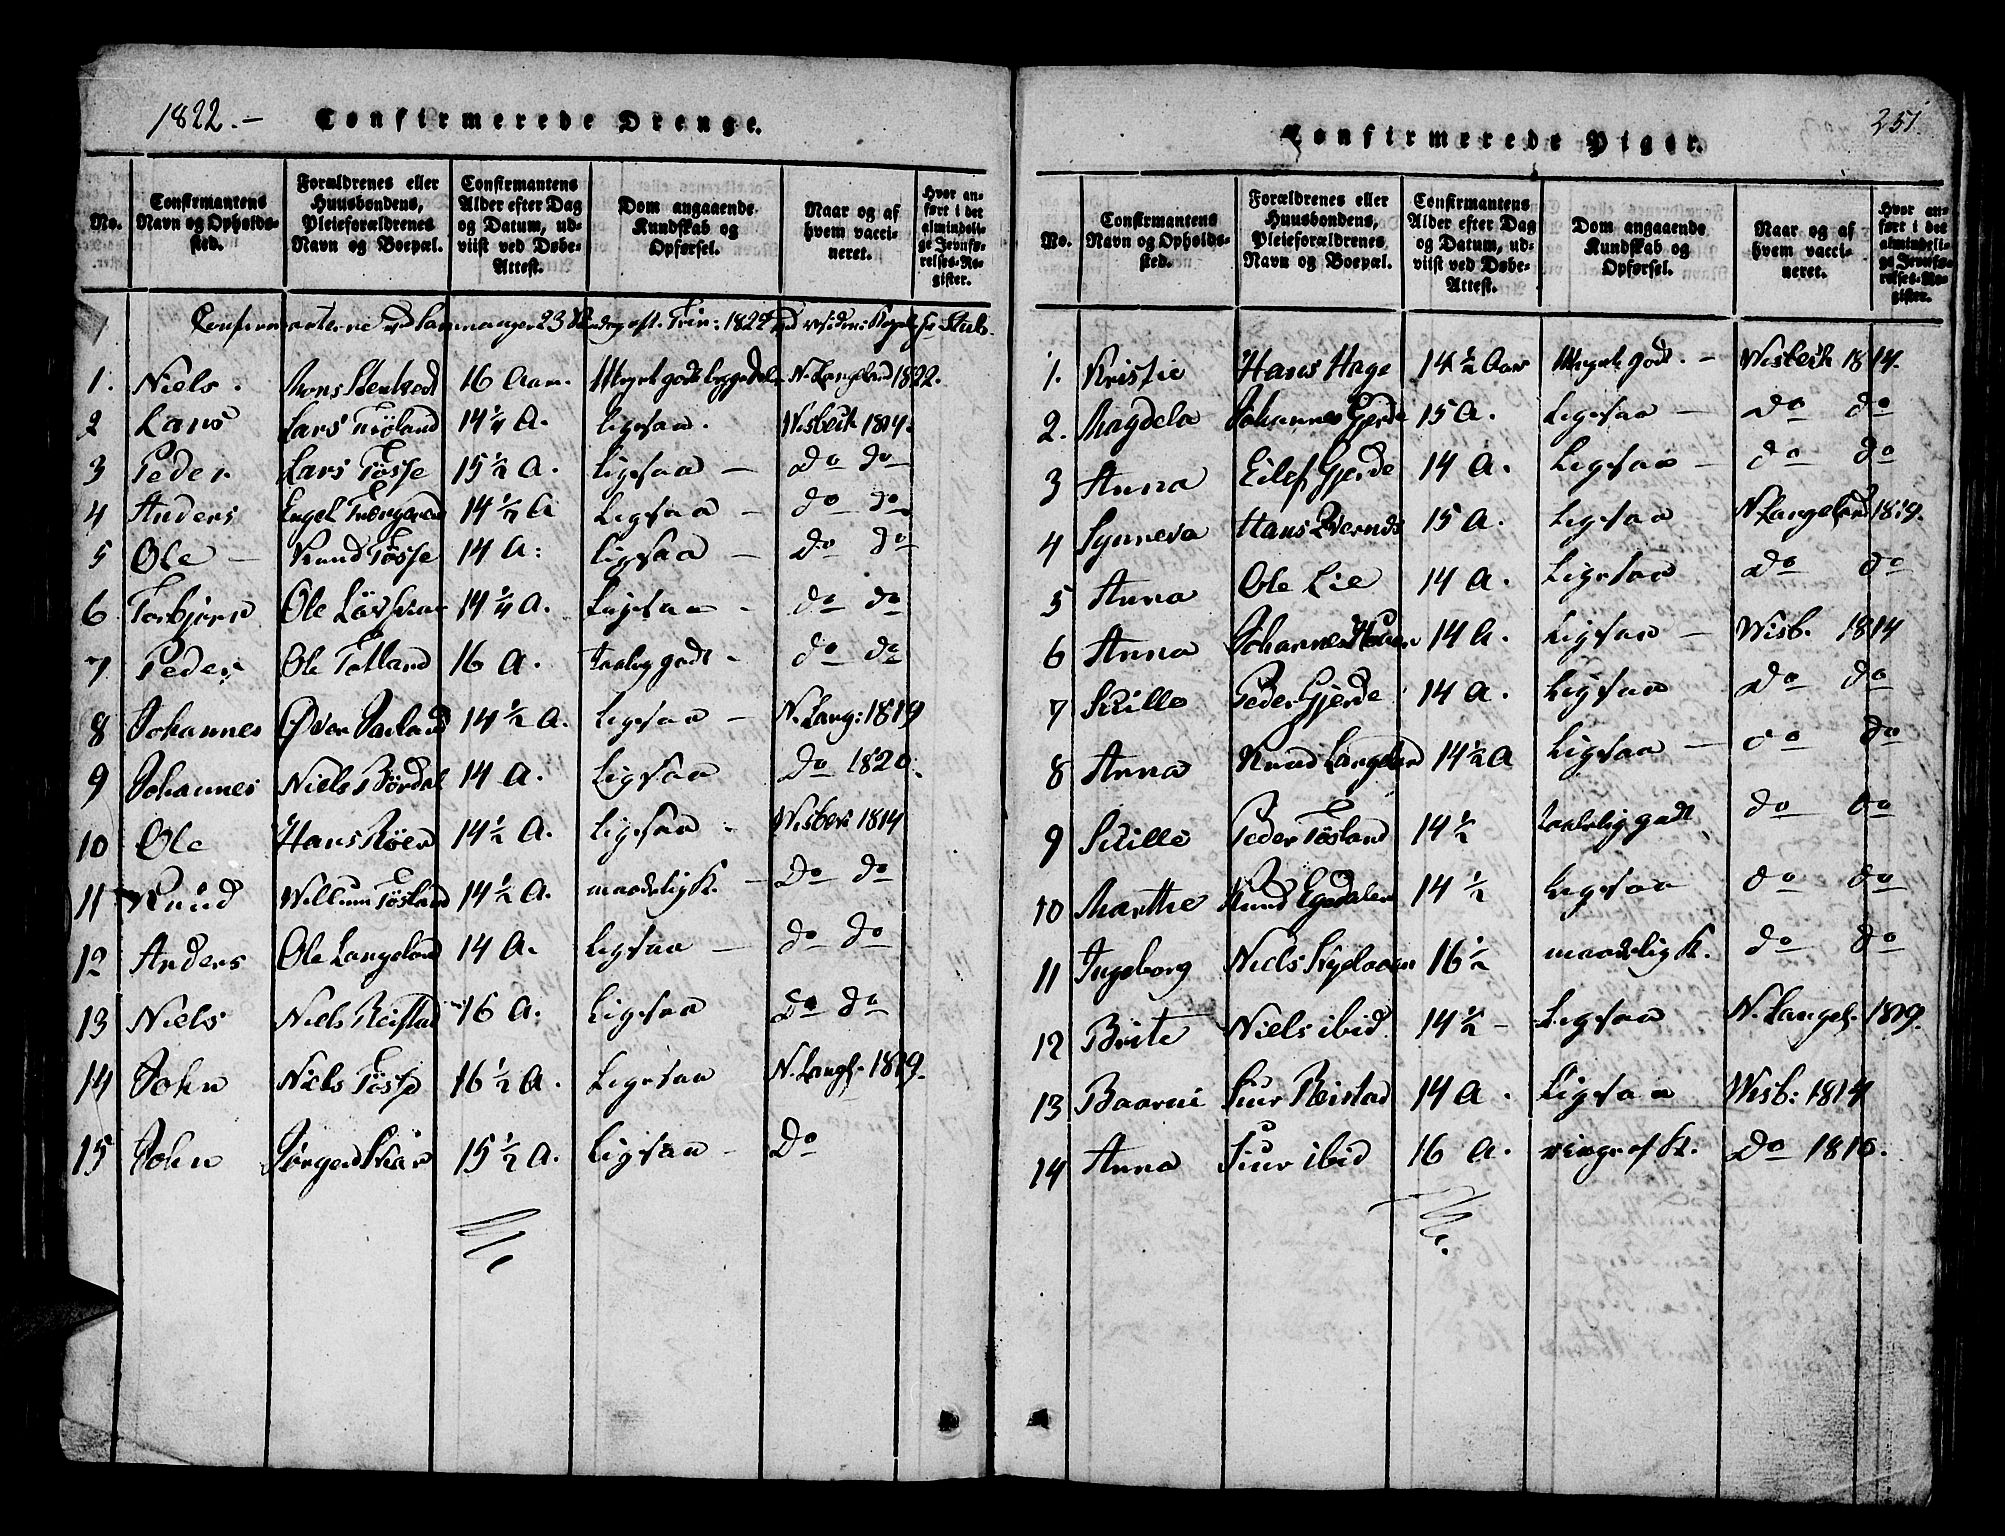 1822.-
Confirmerede Drenge.
No.
Confirmantens Navn og Opholds-sted.
Forældrenes eller Huusbondens, Pleieforældrenes Navn og Boepæl.
Confirmantens Alder efter Dag og Datum, ud-viist ved Døbe-Attest.
Dom angaaende Kundskab og Opførsel.
Naar og af hvem vacci-neret.
Hvor an-ført i det almindeli-ge Jevnfø-relses-Re-gister.
Confirmanterne Samnanger 23 Søndag eft. Trin: 1822
1. Niels. Mons 16 Aar. Meget godt N. Langeland 1822.
2 Lars Lars 14 1/4 A. Ligesaa. Wisbech 1814.
3 Peder Lars Tøsse 15 1/2 A. Ligesaa - Do do
4 Anders Engel 14 1/2 A Ligesaa - do do
5 Ole - Knud Tøsse 14 A: Ligesaa - Do do
6 Torbjørn Ole 14 1/4 A. Ligesaa - do do
7 Peder Ole Totland 16 A. godt - do do
8 Johannes 14 1/2 A. Ligesaa - N. Lang: 1819
9 Johannes Niels Børdal 14 A. Ligesaa Do 1820.
10 Ole Hans Røen 14 1/2 A. Ligesaa - Wisbech 1814
11 Knud Willum Tøsland 14 1/2 A. maadelig K. - Do do
12 Anders Ole Langeland 14 A. Ligesaa - do do
13 Niels Niels Reistad 16 A. Ligesaa Do do
14 John Niels Tøsse 16 1/2 A. Ligesaa N. Langl. 1819.
15 John Jørgen 15 1/2 A. Ligesaa - Do
251
Confirmerede Piger.
No.
Confirmantens Navn og Opholds-sted.
Forældrenes eller Huusbondens, Pleieforældrenes Navn og Boepæl.
Confirmantens Alder efter Dag og Datum, ud-viist ved Døbe-Attest.
Dom angaaende Kundskab og Opførsel.
Naar og af hvem vacci-neret.
Hvor an-ført i det almindeli-ge Jevnfø-relses-Re-gister.
1. Kristie Hans Hage 14 1/2 Aar Meget godt. - Wisbech 1814.
2. Magdela Johannes Gjerde 15 A. Ligesaa - Do do
3 Anna Eilef Gjerde 14 A. Ligesaa - do do
4 Synneva Hans 15 A. Ligesaa N. Langeland 1819.
5 Anna Ole Lie 14 A. Ligesaa Do do
6 Anna Johannes 14 A. Ligesaa - Wisb. 1814
7 Sille Peder Gjerde 14 A. Ligesaa Do do
8 Anna Knud Langeland 14 1/2 A Ligesaa - do do
9 Sille Peder Tøsland 14 1/2 godt do do
10 Marthe Knud 14 1/2 Ligesaa do do
11 Ingeborg Niels 16 1/2 maadelig K. do do
12 Brite Niels ibid 14 1/2 - Ligesaa N. Langel. 1819.
13 Siur Reistad 14 A. Ligesaa Wisb: 1814
14 Anna Siur ibid 16 A. ringe K. Do 1816.